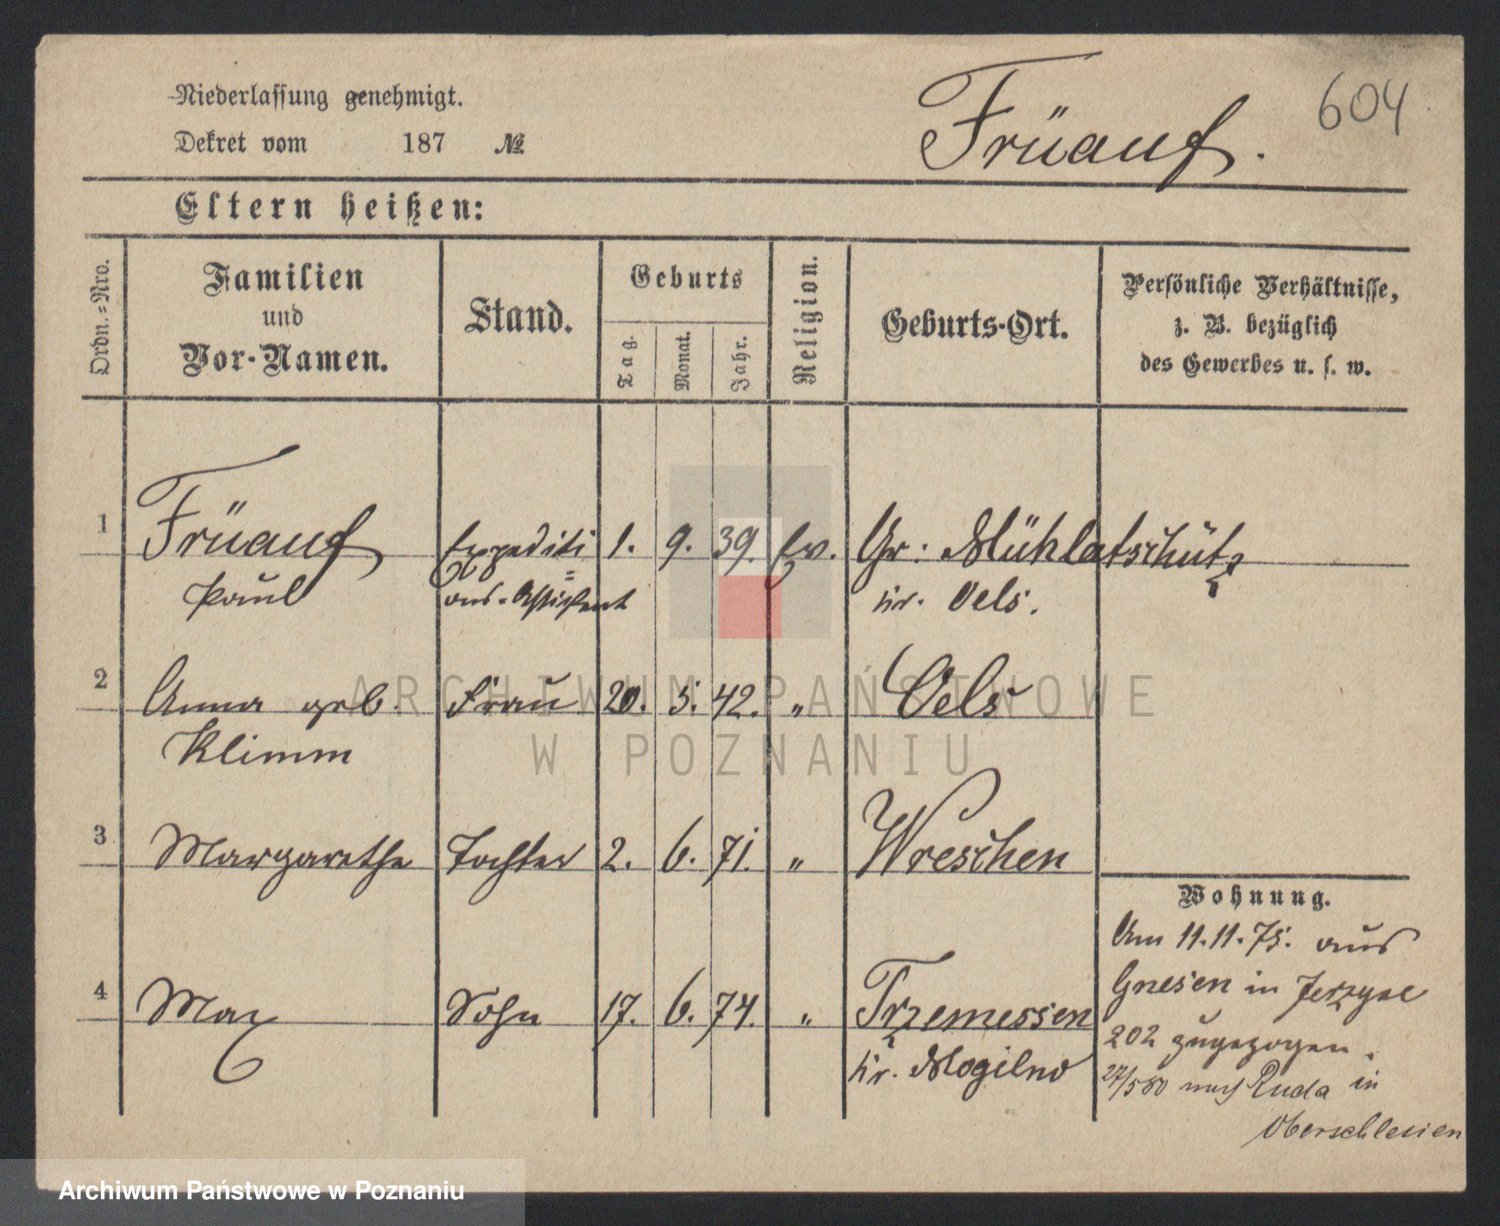 Niederlassung genehmigt.
Dekret vom 187 №
Früauf.
604
Eltern heißen:
Ordn.=Nro.
Familien
und
Vor-Namen.
Stand.
Geburts
Tag.
Monat.
Jahr.
Religion.
Geburts-Ort.
Persönliche Verhältnisse,
z. B. bezüglich
des Gewerbes u. s. w.
1 Früauf Expediti 1. 9. 39. Ev. Gr: Mühlatschütz
Paul ons-Assistent Kr. Oels.
2 Anna geb. Frau 20. 5. 42. " Oels
Klimm
3 Margarethe Tochter 2. 6. 71. " Wreschen
4 Max Sohn 17. 6. 74. " Trzemessen
Kr. Mogilno
Wohnung.
Am 11.11.75. aus
Gnesen in Jerzyce
202 zugezogen.
27/5 80 nach Ruda in
Oberschlesien
ARCHIWUM PAŃSTWOWE
W POZNANIU
Archiwum Państwowe w Poznaniu